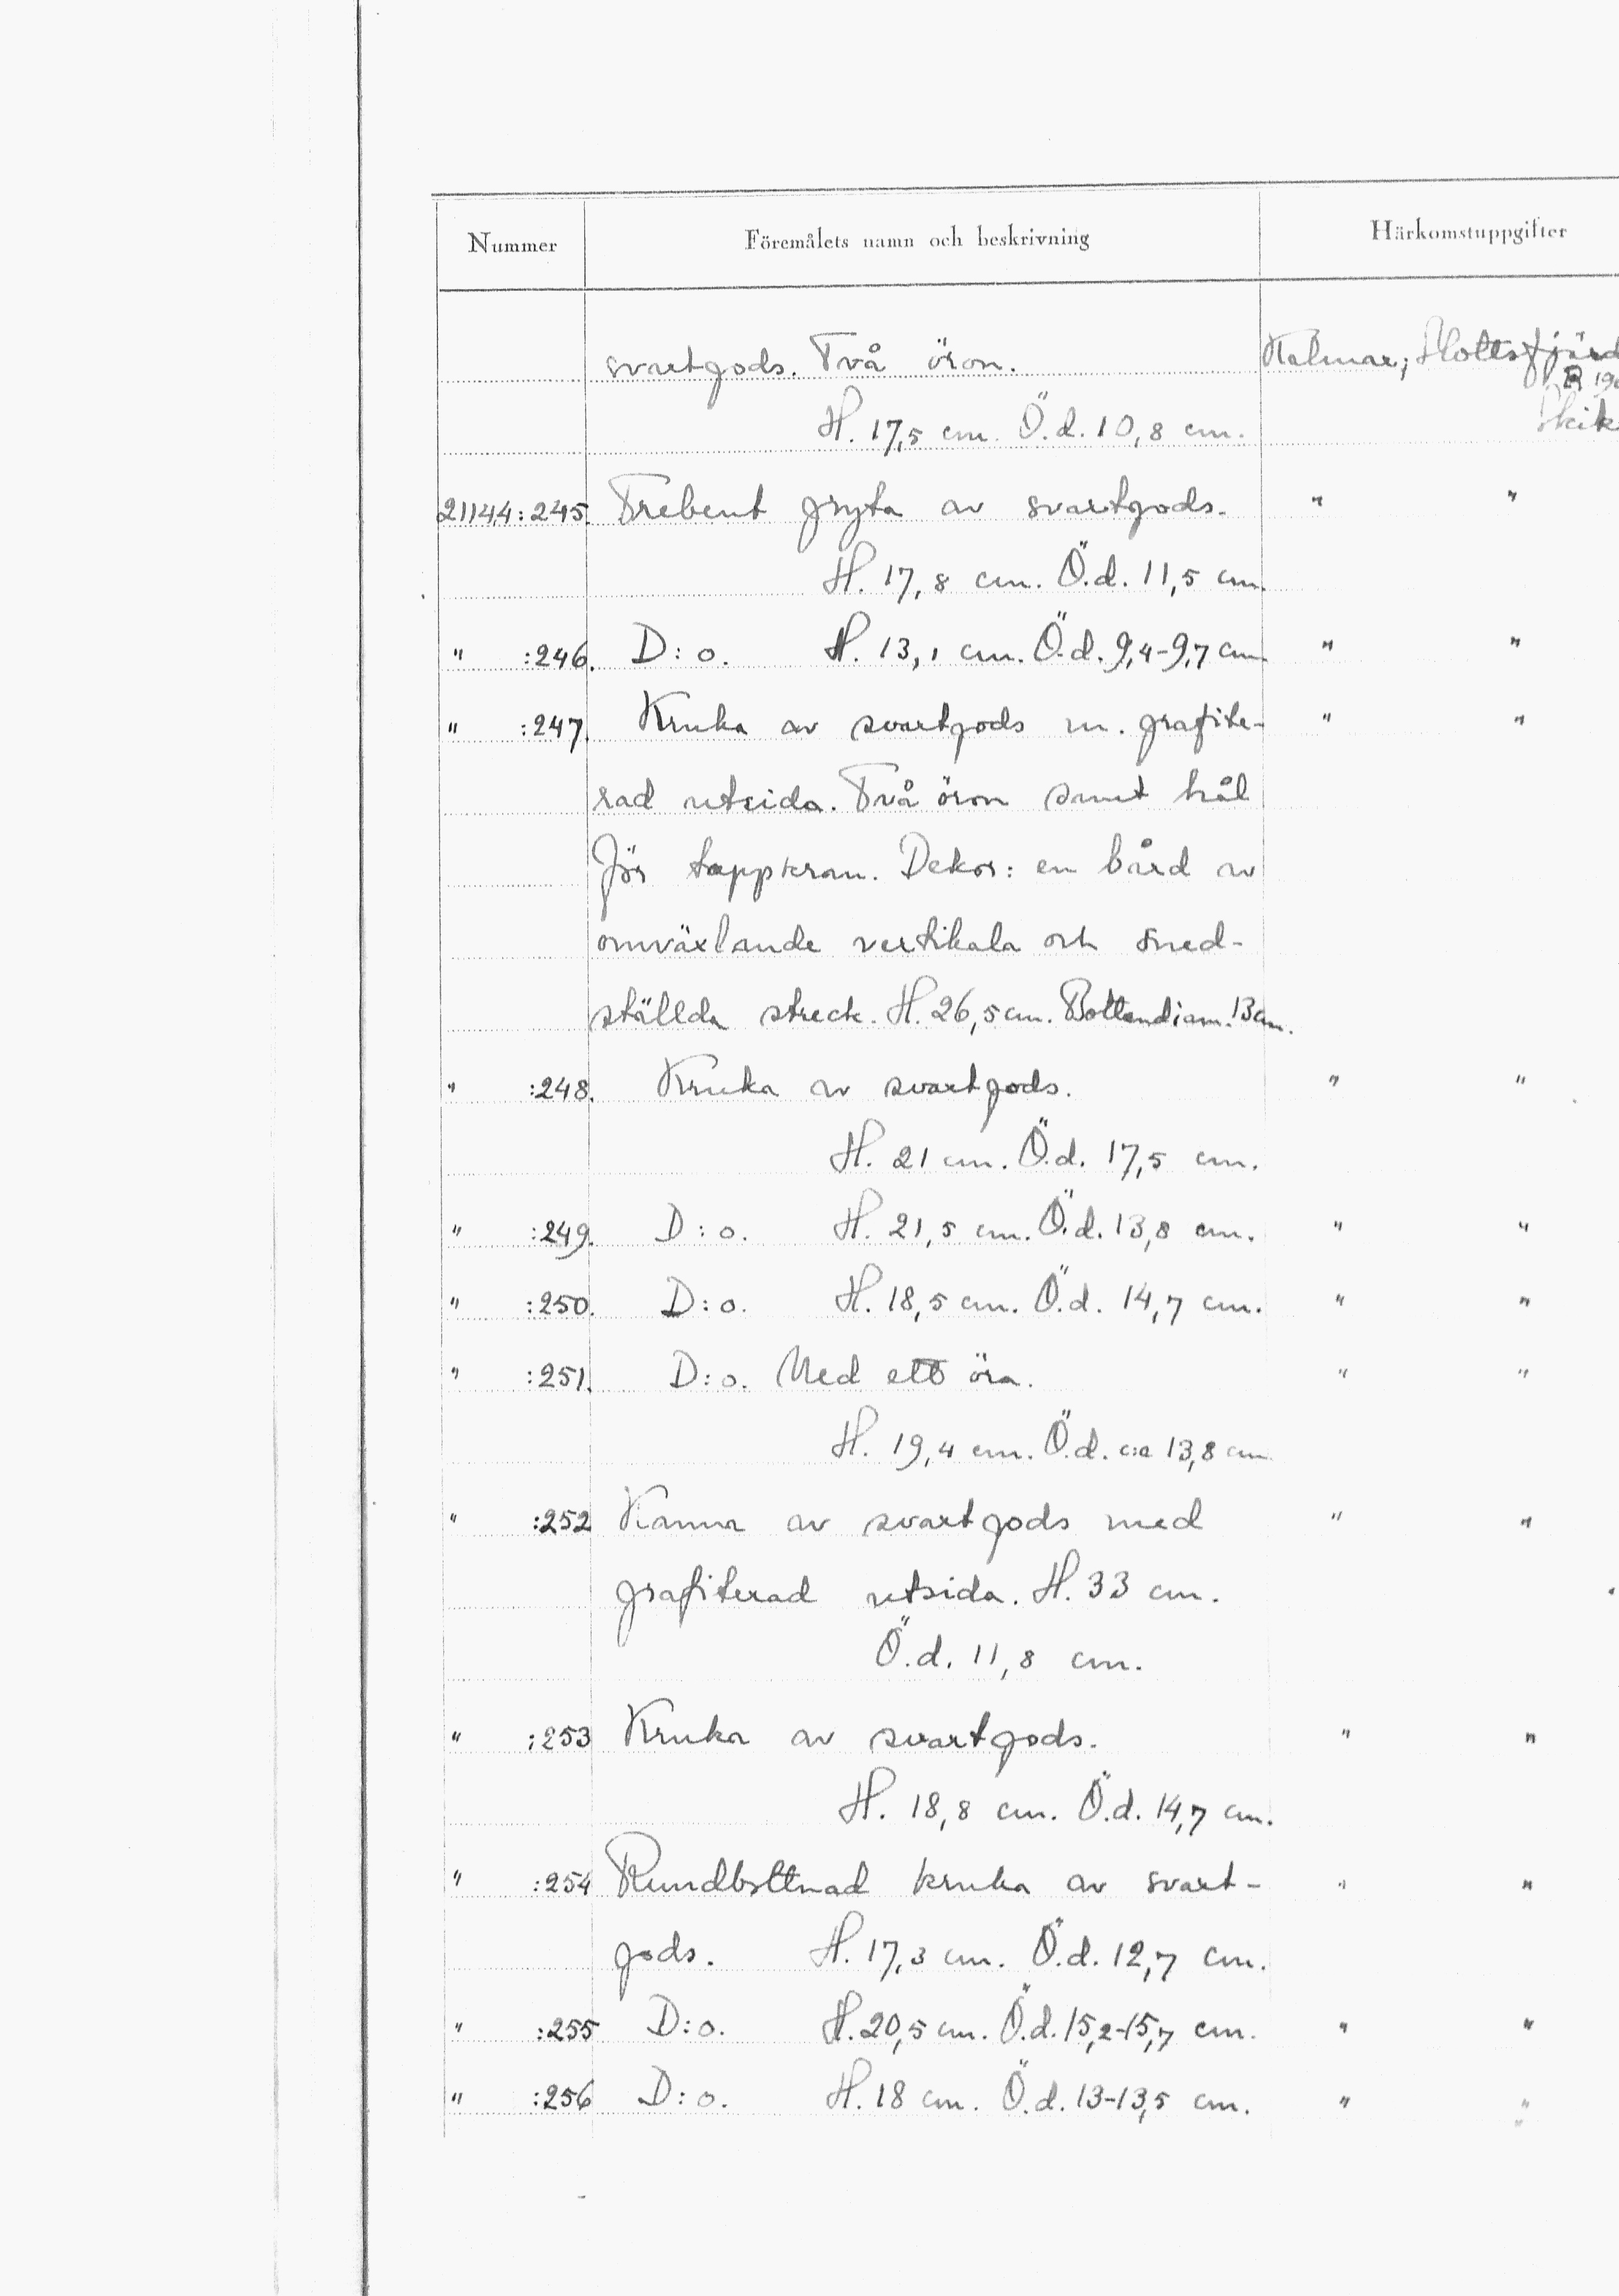 Nummer Föremålets namn och beskrivning Härkomstuppgifter
svartgods. Två öron. Kalmar, Slottsfjärd
H. 17,5 cm. Ö.d. 10,8 cm.
21144:245. Trebent gryta av svartgods. " "
H. 17,8 cm. Ö.d. 11,5 cm.
" :246. D:o. H. 13,1 cm. Ö.d. 9,4-9,7 cm " "
" :247. Kruka av svartgods m. grafite- " "
rad utsida. Två öron samt hål
för tappkran. Dekor: en bård av
omväxlande vertikala och sned-
ställda streck. H. 26,5 cm. Bottendiam. 13 cm.
" :248. Kruka av svartgods. " "
H. 21 cm. Ö.d. 17,5 cm.
" :249. D:o. H. 21,5 cm. Ö.d. 13,8 cm. " "
" :250. D:o. H. 18,5 cm. Ö.d. 14,7 cm. " "
" :251. D:o. Med ett öra. " "
H. 19,4 cm. Ö.d. c:a 13,8 cm
" :252 Kanna av svartgods med " "
grafiterad utsida. H. 33 cm.
Ö.d. 11,8 cm.
" :253 Kruka av svartgods. " "
H. 18,8 cm. Ö.d. 14,7 cm.
" :254 Rundbottnad kruka av svart- " "
gods. H. 17,3 cm. Ö.d. 12,7 cm.
" :255 D:o. H. 20,5 cm. Ö.d. 15,2-15,7 cm. " "
" :256 D:o. H. 18 cm. Ö.d. 13-13,5 cm. " "